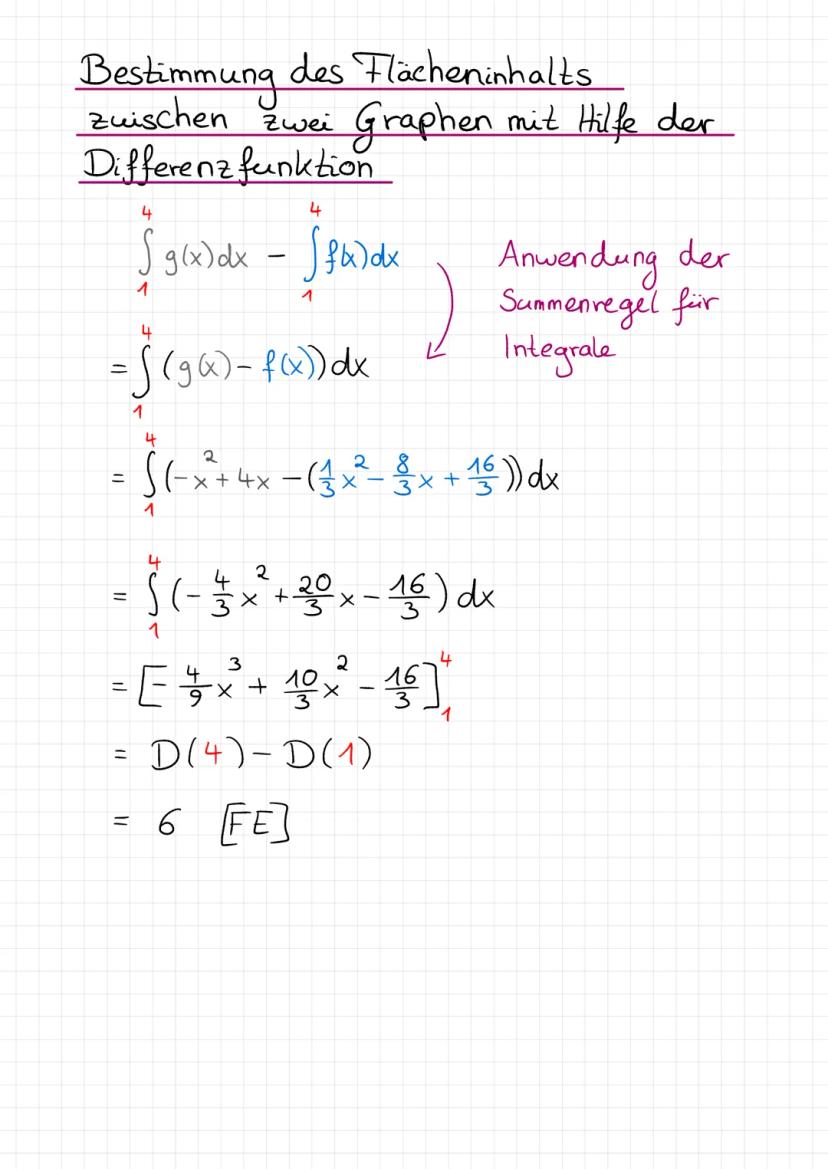 Bestimmung des Flächeninhalts
zwischen zwei Graphen mit Hilfe der
Differenzfunktion
∫₁⁴ g(x)dx − ∫₁⁴ f(x)dx
Anwendung der
Summenregel für
Integrale
= ∫₁⁴ (g(x) − f(x)) dx
= ∫₁⁴ (−x² + 4x − (1/3 x² − 8/3 x + 16/3)) dx
= ∫₁⁴ (− 4/3 x² + 20/3 x − 16/3) dx
= [− 4/9 x³ + 10/3 x² − 16/3]₁⁴
= D(4) − D(1)
= 6 [FE]